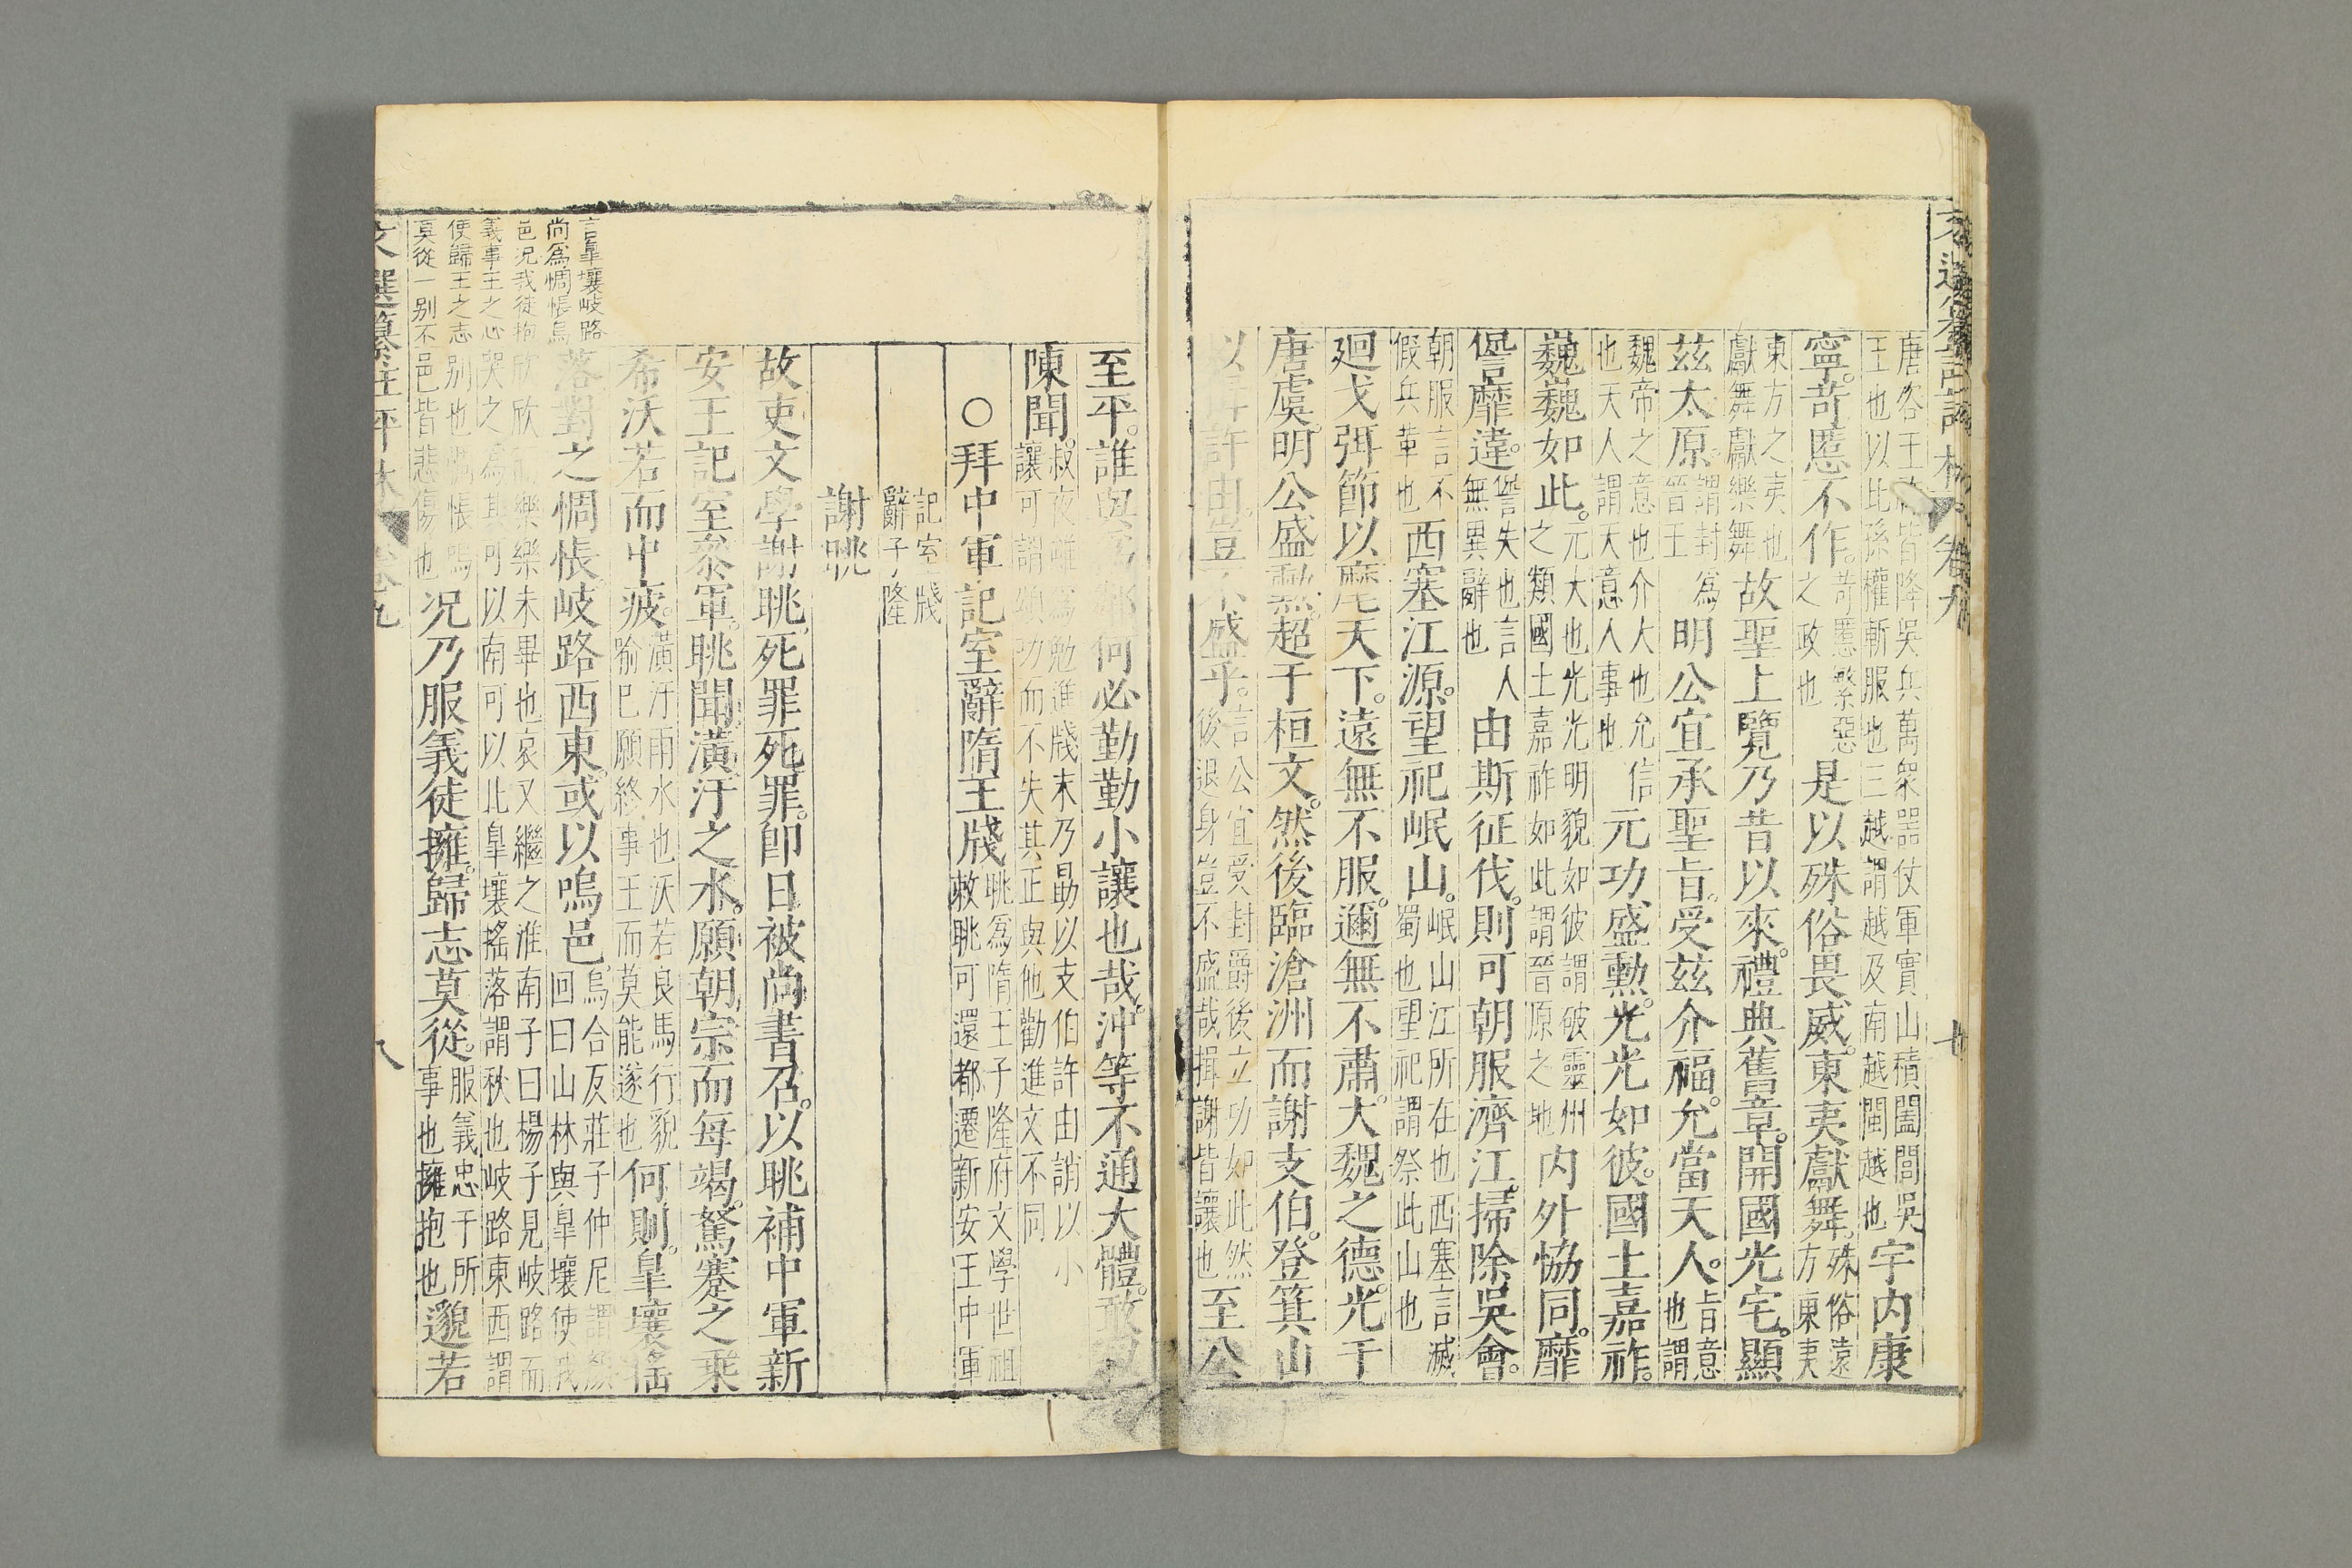 唐咨王 皆降吳兵萬衆器仗軍實山積闔閭吳
王也以此孫權斬服也三越謂越及南越閩越也
宇内康
寧苛慝不作
苛慝繁惡
之政也
是以殊俗畏威東夷獻舞
殊俗遠
方東夷
東方之夷也
獻舞獻樂舞
故聖上覽乃昔以來禮典舊章開國光宅顯
茲太原
謂封爲
晉王
明公宜承聖旨受茲介福允當天人
旨意
也謂
魏帝之意也介大也允信
也天人謂天意人事也
元功盛勲光光如彼國土嘉祚
巍巍如此
元大也光光明貌如彼謂破靈州
之類國土嘉祚如此謂晉原之地
内外協同靡
諐靡違
諐失也言人
無異辭也
由斯征伐則可朝服濟江掃除吳會
朝服言不
假兵革也
西塞江源望祀岷山
岷山江所在也西塞言滅
蜀也望祀謂祭此山也
廻戈弭節以麾天下遠無不服邇無不肅大魏之德光于
唐虞明公盛勲超于桓文然後臨滄洲而謝支伯登箕山
以 許由豈不盛乎
言公宜受封爵後立功如此然
後退身豈不盛哉揖謝皆讓也
至公
至平誰與 何必勤勤小讓也哉沖等不通大體敢
陳聞
叔夜 勉進牋末乃勗以支伯許由誚以小
讓可謂頌功而不失其正與他勸進文不同
○拜中軍記室辭隋王牋
眺爲隋王子隆府文學世祖
敕眺可還都遷新安王中軍
記室牋
辭子隆
謝眺
故吏文學謝眺死罪死罪卽日被尚書召以眺補中軍新
安王記室叅軍眺聞潢汙之水願朝宗而每竭駑蹇之乘
希沃若而中疲
潢汙雨水也沃若良馬行貌
喻巳願終事王而莫能遂也
何則皐壤搖
落對之惆悵岐路西東或以嗚邑
烏合反莊子仲尼謂顏
回曰山林與皐壤使我
欣欣而樂樂未畢也哀又繼之淮南子曰楊子見岐路而
哭之爲其可以南可以北皐壤搖落謂秋也岐路東西謂
別也惆悵嗚
邑皆悲傷也
况乃服義徒擁歸志莫從
服義忠于所
事也擁抱也
邈若
言皐壤岐路
尚爲惆悵烏
邑况我徒抱
義事王之心
使歸王之志
莫從一別不
文選纂註評林
卷九
八
文選纂註評林
卷九
七